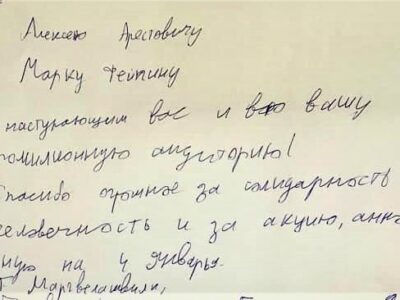 Алексею Арестовичу
Марку Фейгину
наступающим вас и всю вашу
омилионную аудиторию!
Спасибо огромное за солидарность
человечность и за акцию, анн
ную на 4 январья.
Маргвелашвили,